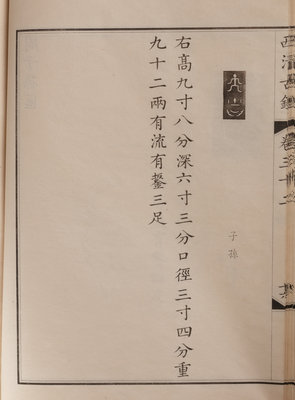 西清古鑑
卷三十二
子孫
右高九寸八分深六寸三分口徑三寸四分重
九十二兩有流有鋬三足